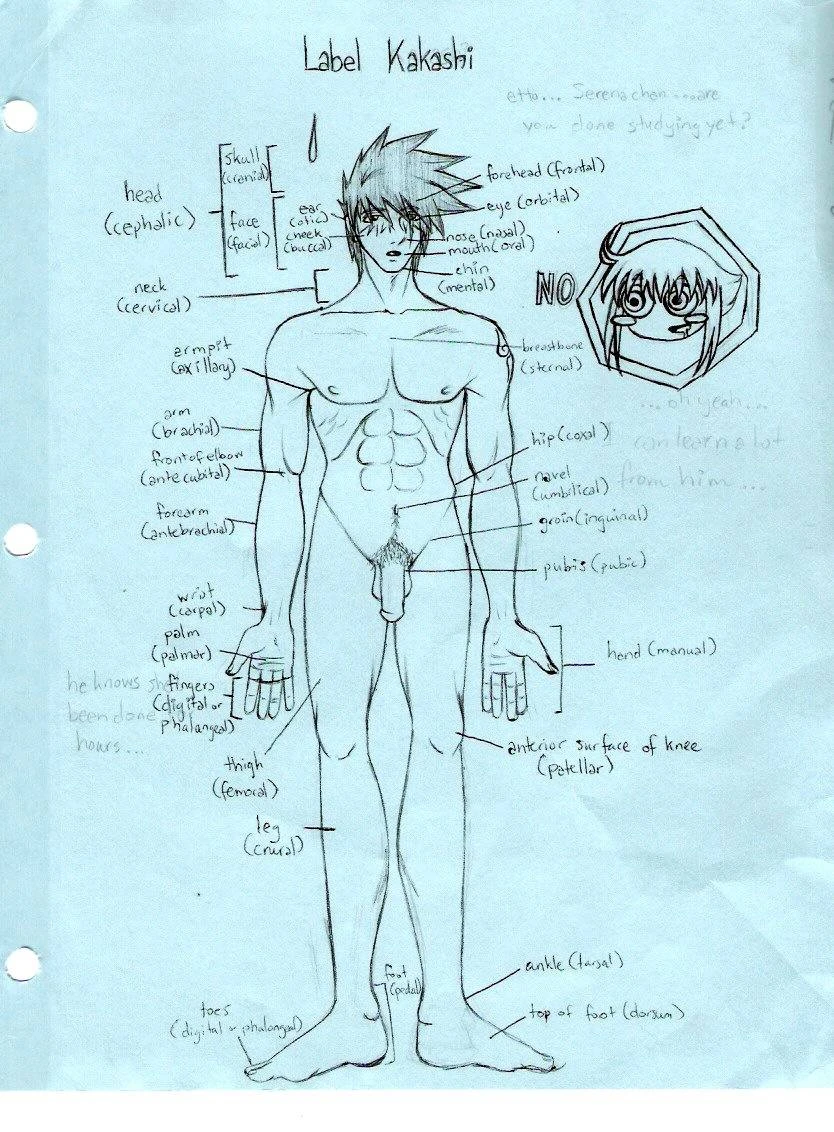 Label Kakashi
etto... Serena chan ....are
you done studying yet?
skull
(cranial)
head
(cephalic)
face
(facial)
ear
(otic)
cheek
(buccal)
forehead (frontal)
eye (orbital)
nose (nasal)
mouth (oral)
chin
(mental)
neck
(cervical)
NO
armpit
(axillary)
breastbone
(sternal)
...oh yeah...
can learn a lot
from him ...
arm
(brachial)
front of elbow
(antecubital)
forearm
(antebrachial)
hip (coxal)
navel
(umbilical)
groin (inguinal)
pubis (pubic)
wrist
(carpal)
palm
(palmar)
hand (manual)
he knows she
been done
hours...
fingers
(digital or
phalangeal)
thigh
(femoral)
anterior surface of knee
(patellar)
leg
(crural)
foot
(pedal)
ankle (tarsal)
toes
(digital or phalangeal)
top of foot (dorsum)